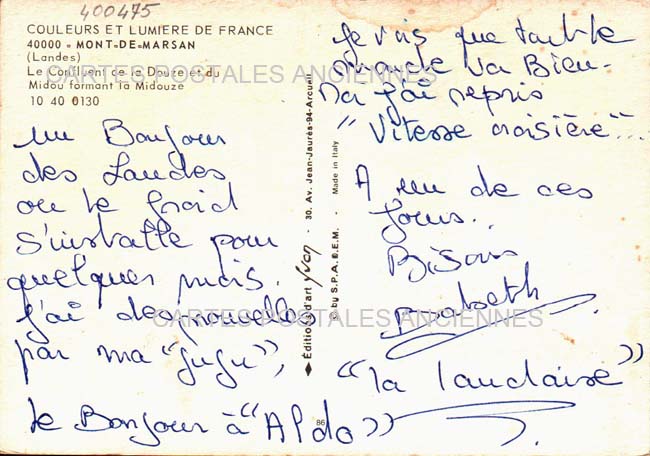 400475
COULEURS ET LUMIERE DE FRANCE
40000 - MONT-DE-MARSAN
(Landes)
Le Confluent de la Douze et du
Midou formant la Midouze
10 40 0130
CARTES POSTALES ANCIENNES
un Bonjour
des Landes
ou le froid
s'installe pour
quelques mois.
j'ai des nouvelles
par ma "gugu",
le Bonjour à "Aldo"
Editions d'art yvon - 30, Av. Jean-Jaurès-94-Arcueil
© by S.P.A.D.E.M. - Made in Italy
86
Je vois que tout le
monde va Bien -
j'ai repris
"Vitesse croisière"...
A un de ces
jours.
Bisous
"la landaise"
CARTES POSTALES ANCIENNES